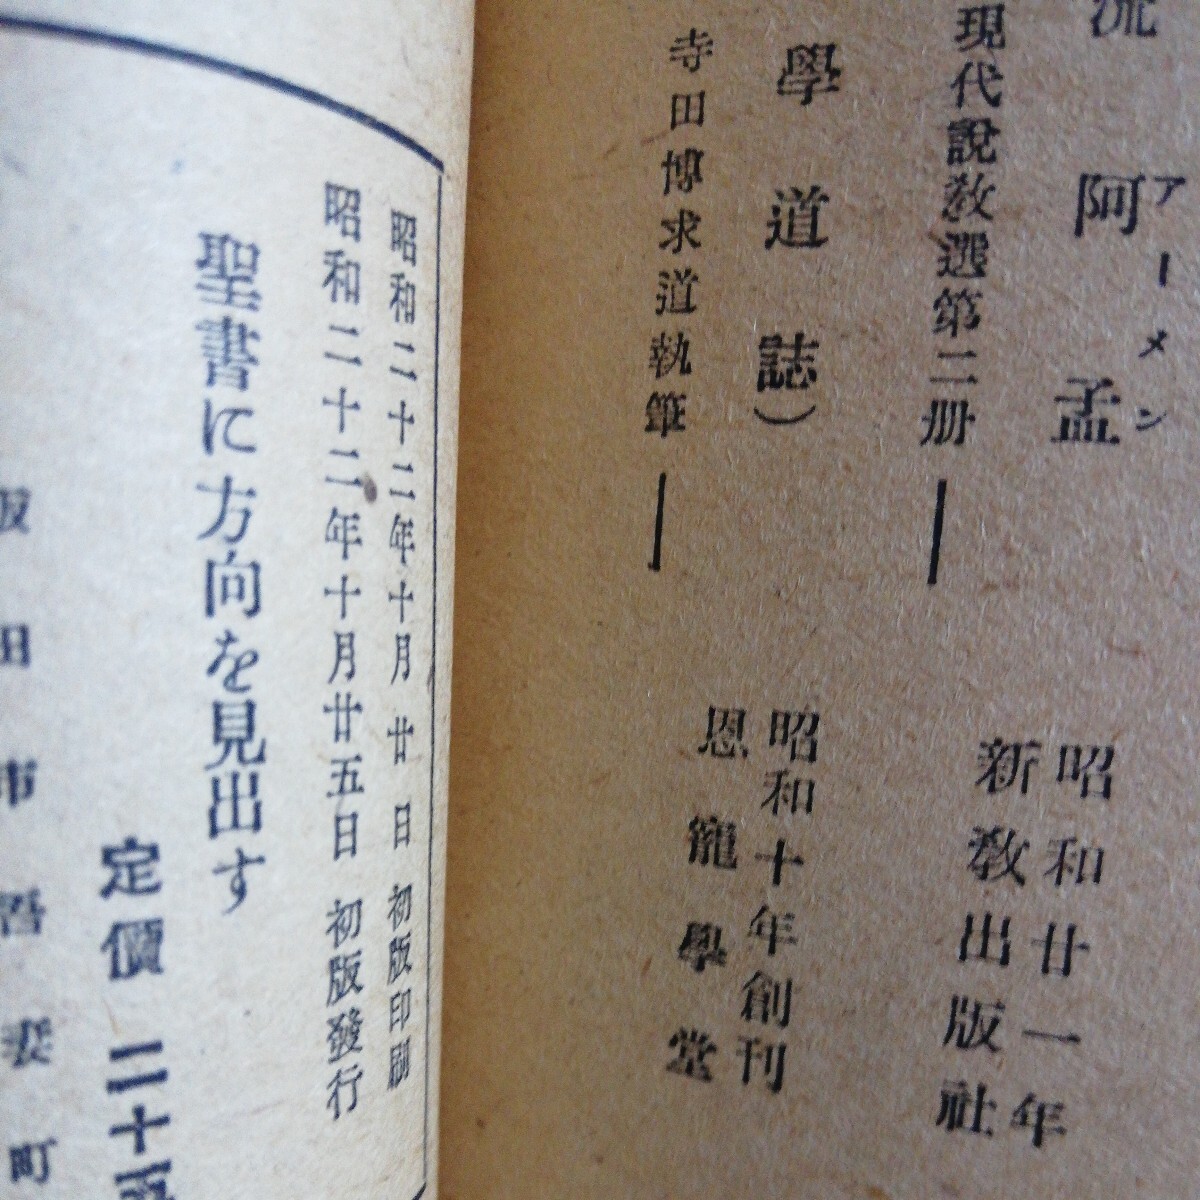 流 阿 孟
アーメン
現代說敎選第二册
昭和廿一年
新敎出版社
學道誌）
寺田博求道執筆
昭和十年創刊
恩寵學堂
昭和二十二年十月廿日初版印刷
昭和二十二年十月廿五日初版發行
聖書に方向を見出す
定價 二十
田市吾妻町